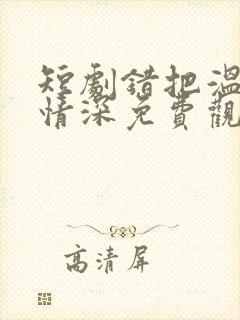 短劇錯把溫
情深免費觀
高清屏